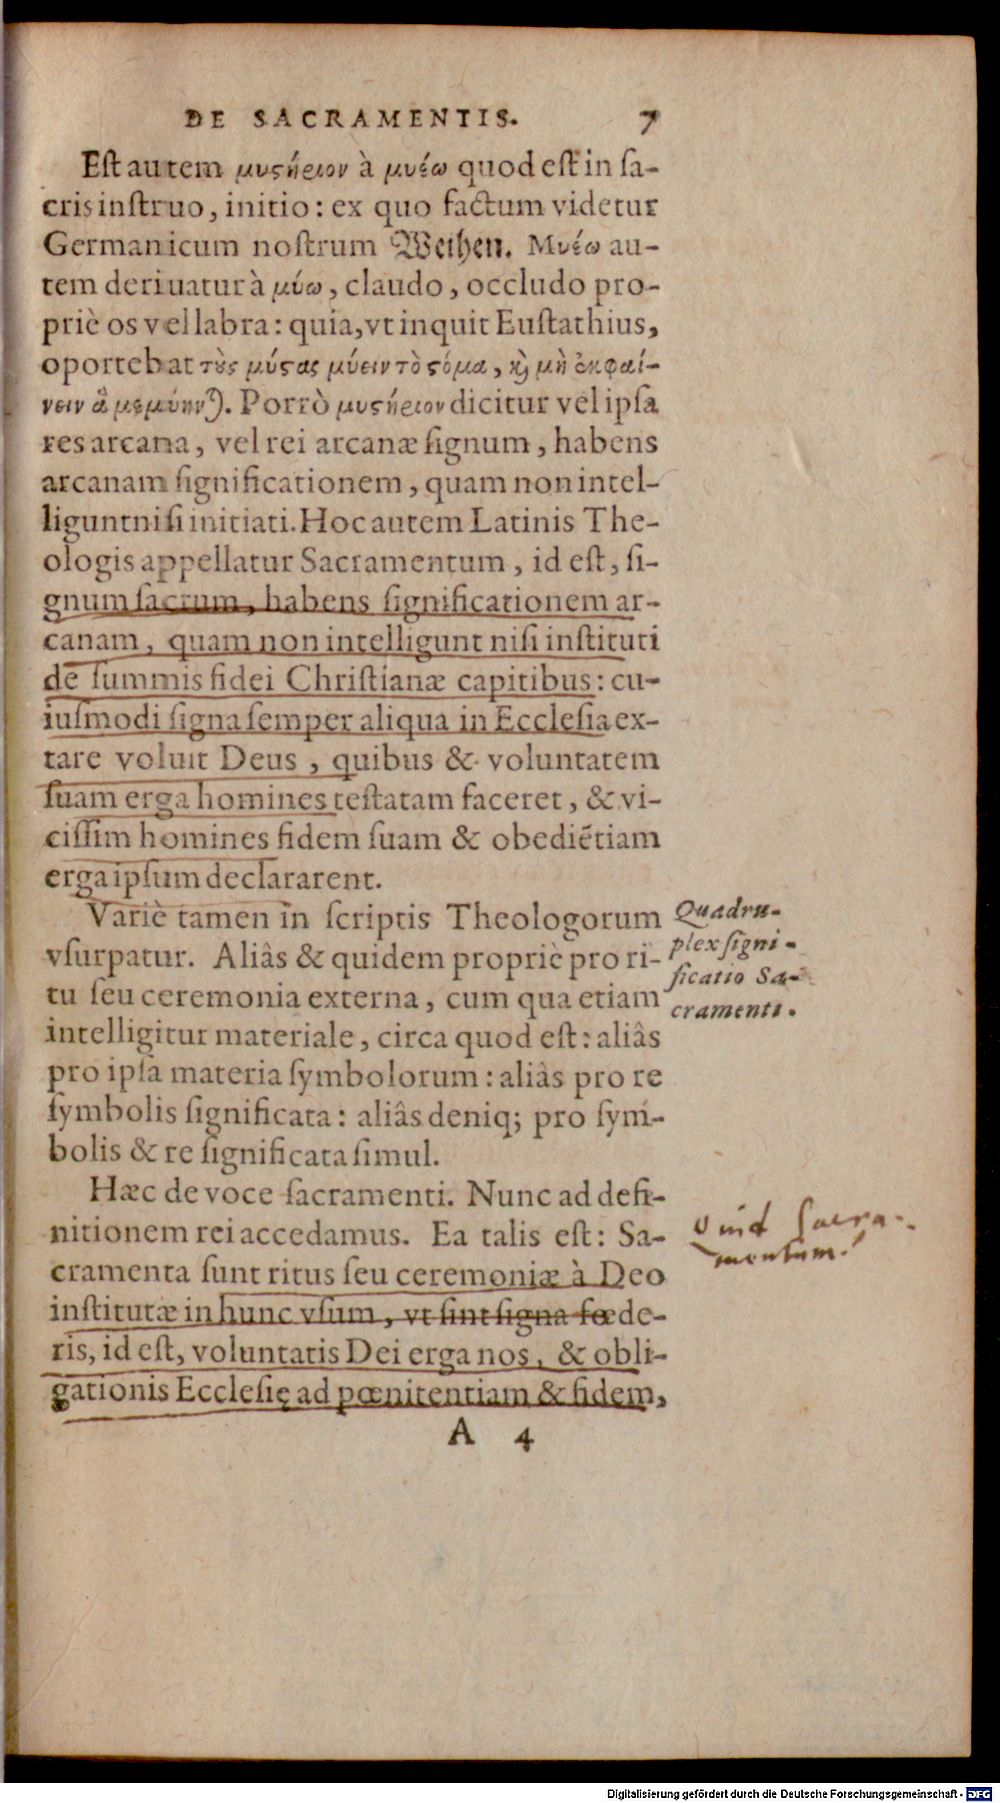 DE SACRAMENTIS. 7
Eſt autem μυϛήριον à μυέω quod eſt in ſa-
cris inſtruo, initio: ex quo factum videtur
Germanicum noſtrum Weihen. Μυέω au-
tem deriuatur à μύω, claudo, occludo pro-
priè os vel labra: quia, vt inquit Euſtathius,
oportebat τοὺς μύϛας μύειν τὸ ϛόμα, ϗ μὴ ἐκφαί-
νειν ἃ μεμύηνται. Porrò μυϛήριον dicitur vel ipſa
res arcana, vel rei arcanæ ſignum, habens
arcanam ſignificationem, quam non intel-
ligunt niſi initiati. Hoc autem Latinis The-
ologis appellatur Sacramentum, id eſt, ſi-
gnum ſacrum, habens ſignificationem ar-
canam, quam non intelligunt niſi inſtituti
de ſummis fidei Chriſtianæ capitibus: cu-
iuſmodi ſigna ſemper aliqua in Eccleſia ex-
tare voluit Deus, quibus & voluntatem
ſuam erga homines teſtatam faceret, & vi-
ciſſim homines fidem ſuam & obediẽtiam
erga ipſum declararent.
Variè tamen in ſcriptis Theologorum
vſurpatur. Aliâs & quidem propriè pro ri-
tu ſeu ceremonia externa, cum qua etiam
intelligitur materiale, circa quod eſt: aliâs
pro ipſa materia ſymbolorum: aliâs pro re
ſymbolis ſignificata: aliâs deniq; pro ſym-
bolis & re ſignificata ſimul.
Quadru-
plex ſigni-
ficatio Sa-
cramenti.
Hæc de voce ſacramenti. Nunc ad defi-
nitionem rei accedamus. Ea talis eſt: Sa-
cramenta ſunt ritus ſeu ceremoniæ à Deo
inſtitutæ in hunc vſum, vt ſint ſigna fœde-
ris, id eſt, voluntatis Dei erga nos, & obli-
gationis Eccleſię ad pœnitentiam & fidem,
Sacra-
mentum.
A 4
Digitalisierung gefördert durch die Deutsche Forschungsgemeinschaft - DFG